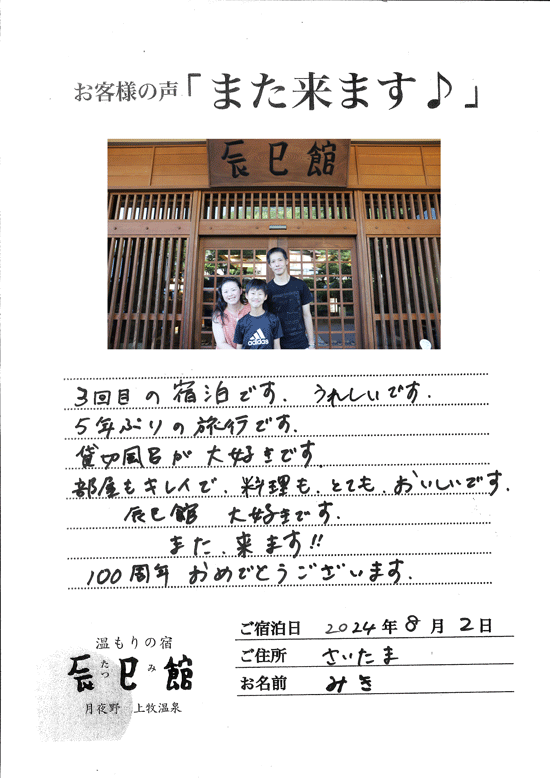 お客様の声「また来ます♪」
辰巳館
adidas
3回目の宿泊です. うれしいです.
5年ぶりの旅行です.
貸切風呂が大好きです.
部屋もキレイで、料理も、とても、おいしいです.
辰巳館 大好きです.
また、来ます!!
100周年 おめでとうございます.
ご宿泊日 2024年8月2日
ご住所 さいたま
お名前 みき
温もりの宿
辰巳館
たつ み
月夜野 上牧温泉